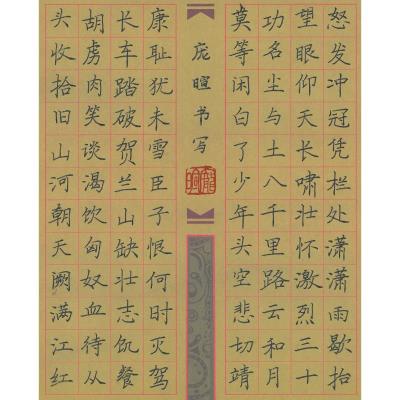 怒发冲冠凭栏处潇潇雨歇抬
望眼仰天长啸壮怀激烈三十
功名尘与土八千里路云和月
莫等闲白了少年头空悲切靖
庞暄书写
康耻犹未雪臣子恨何时灭驾
长车踏破贺兰山缺壮志饥餐
胡虏肉笑谈渴饮匈奴血待从
头收拾旧山河朝天阙满江红